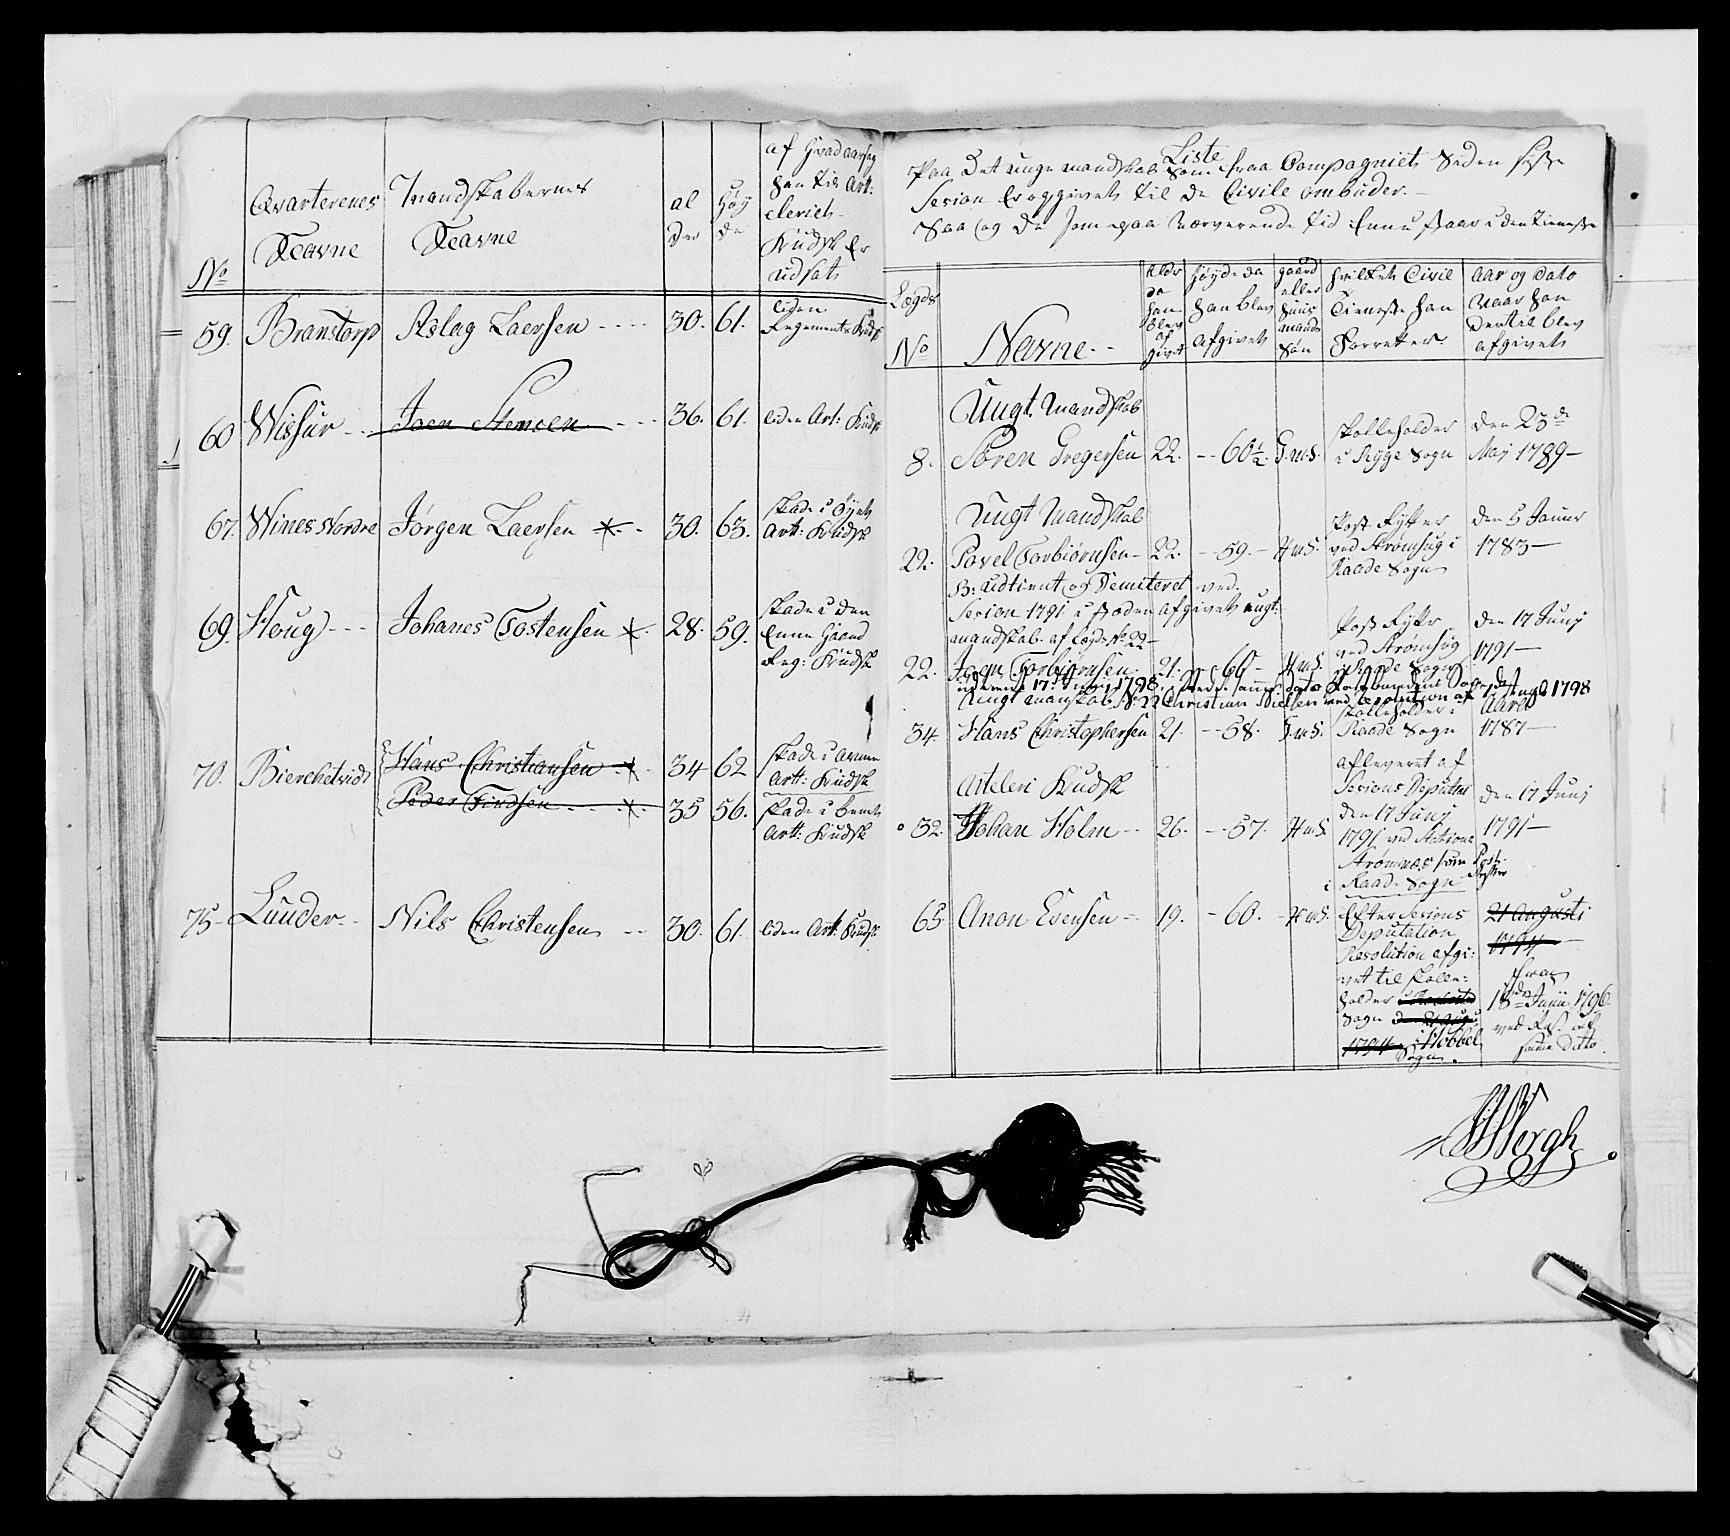 No
Qvarterenes
Navne
Mandskabernes
Navne
al
der
Høy
de
af Hvad aarsag
han til Art:
leriet
Kudsk Er
udsat
59. Branstorp Aslag Laersen 30. 61. liden
Regements Kudsk
60 Wissur Joen Stensen 36. 61. liden Art: Kudsk
67. Wines Nordre Jørgen Laersen 30. 63. skade i Øyet
Art: Kudsk
69. Houg Johanes Tostensen 28. 59. skade i den
Ene Haand
Reg: Kudsk
70. Bierchetvidt Hans Christiansen 34 62 skade i armen
Art: Kudsk
Peder Findsen 35 56. skade i benet
Art: Kudsk
75 Luuder Nils Christensen 30. 61 liden Art: Kudsk
Liste
Paa Det unge mandskab som fraa Compagniet Seden siste
Sesion Er opgivet til De Civile ombuder.
Saa og De som paa nærværende tid Ennu staar i den tieneste
Lægds
No
Navne
alder
da
han
blev
af
givet
høyde da
han blev
afgivet
gaard
eller
huus
mands
Søn
hvilket Civil
Tieneste han
Forretter
Aar og Dato
Naar han
dertil blev
afgivet
Ungt Mandskab
8. Søren Gregersen 22. 60½. G.m.S. skolleholder
i Rygge Sogn
den 23de
Maj 1789
Ungt Mandskab
22. Povel Torbiørnsen 22. 59. H.m.S. Post Rytter
ved Strømhug i
Raade Sogn
den 5 Januar
1783
B: udtient og Demiteret ved
Sesion 1791 i steden afgivet ungt
mandskab af Lægds No 22
22. Joen Torbiørnsen 21. 60 H.m.S. Post Rytter
ved Strømhøg
i Raade Sogn
den 17 Junij
1791
Ungt manskab No 22 Christian Nielsen
1798
34. Hans Christophersen 21. 58. G.m.S. skolleholder i
Raade Sogn
Aaret
1787
Arteleri Kudsk
32. Johan Holm 26. 57. H.m.S. afleveret af
Sesions Deputas
den 17 Junij
1791 ved Stationen
Strømnæs som Post-
Rytter
i Raade Sogn
den 17 Junij
1791
65. Anon Evensen 19. 60. H.m.S. Efter Sesions
Deputation
Resolution afgi:
vet til skolle:
holder
Sogn
1794 i Hobbel
Sogn.
21 Augusti
1794
18de Junii 1796.
ved Res. af
samme Dato.
Wergh